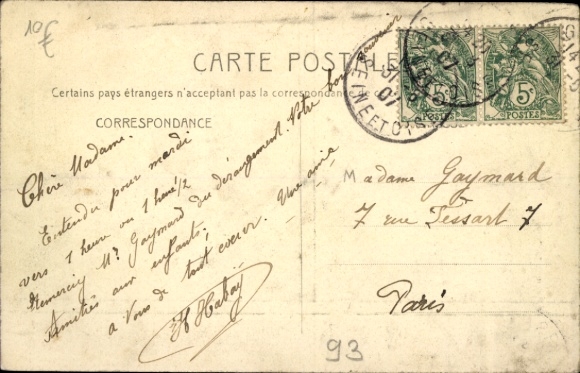 10 f
CARTE POSTALE
Certains pays étrangers n'acceptent pas la correspondance
CORRESPONDANCE
Chère Madame.
Entendu pour mardi
vers 1 heure ou 1 heure 1/2
Remerciez Mr Gaymard du dérangement. Votre bon souvenir
Amitiés aux enfants.
à Vous de tout coeur. Une amie
H Habay
Madame Gaymard
7 rue Tessart 7
Paris
5c
POSTES
5c
POSTES
SEINE ET OISE
93